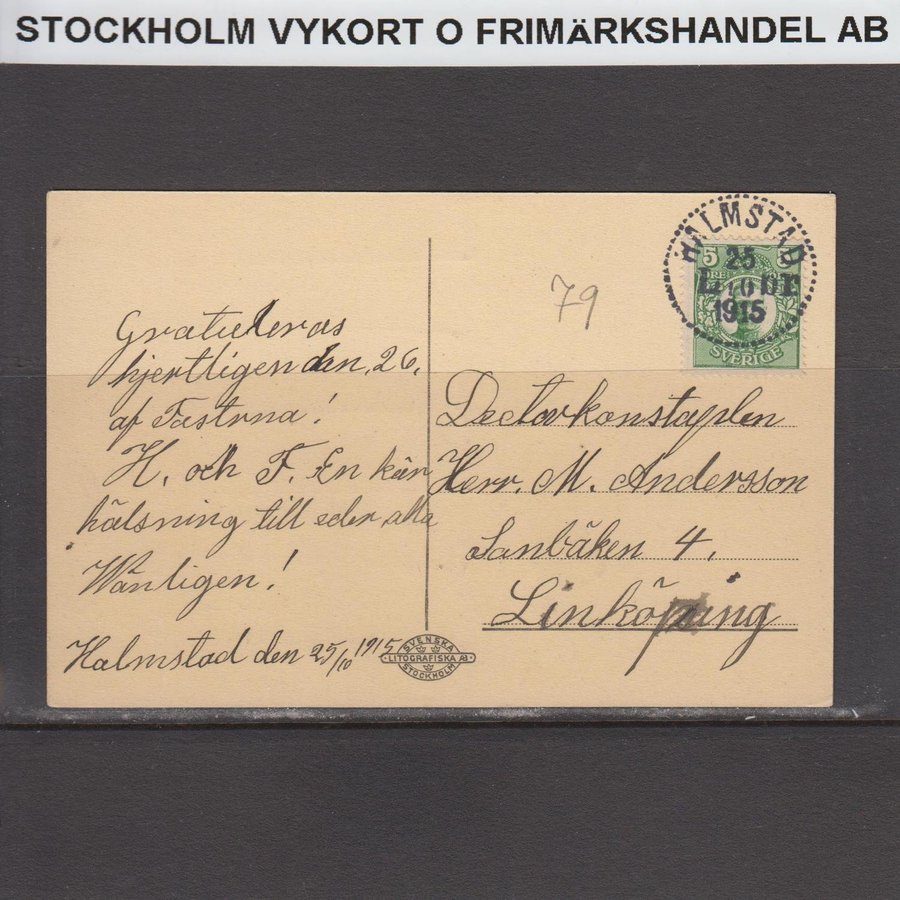 STOCKHOLM VYKORT O FRIMÄRKSHANDEL AB
HALMSTAD
25
10
1915
5
ÖRE
SVERIGE
79
Gratuleras
hjertligen den, 26,
af Fastrna!
H. och F. En kär
hälsning till eder alla
Wänligen!
Halmstad den 25/10 1915
SVENSKA
LITOGRAFISKA AB
STOCKHOLM
Dectorkonstaplen
Herr. M. Andersson
Sanbäken 4,
Linköping